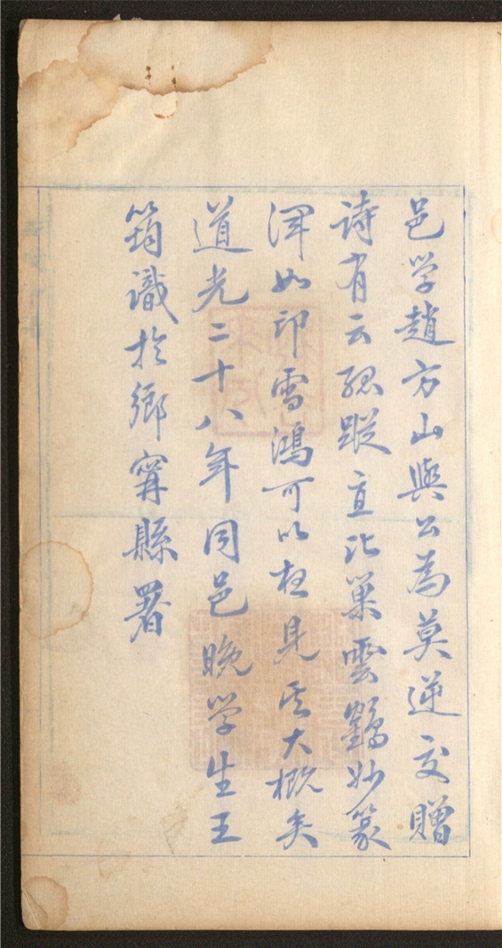 邑学趙方山與公為莫逆交贈
詩有云孤蹤直比巢雲鶴妙篆
渾如印雪鴻可以想見其大概矣
道光二十八年同邑晚学生王
筠識於鄉寗縣署